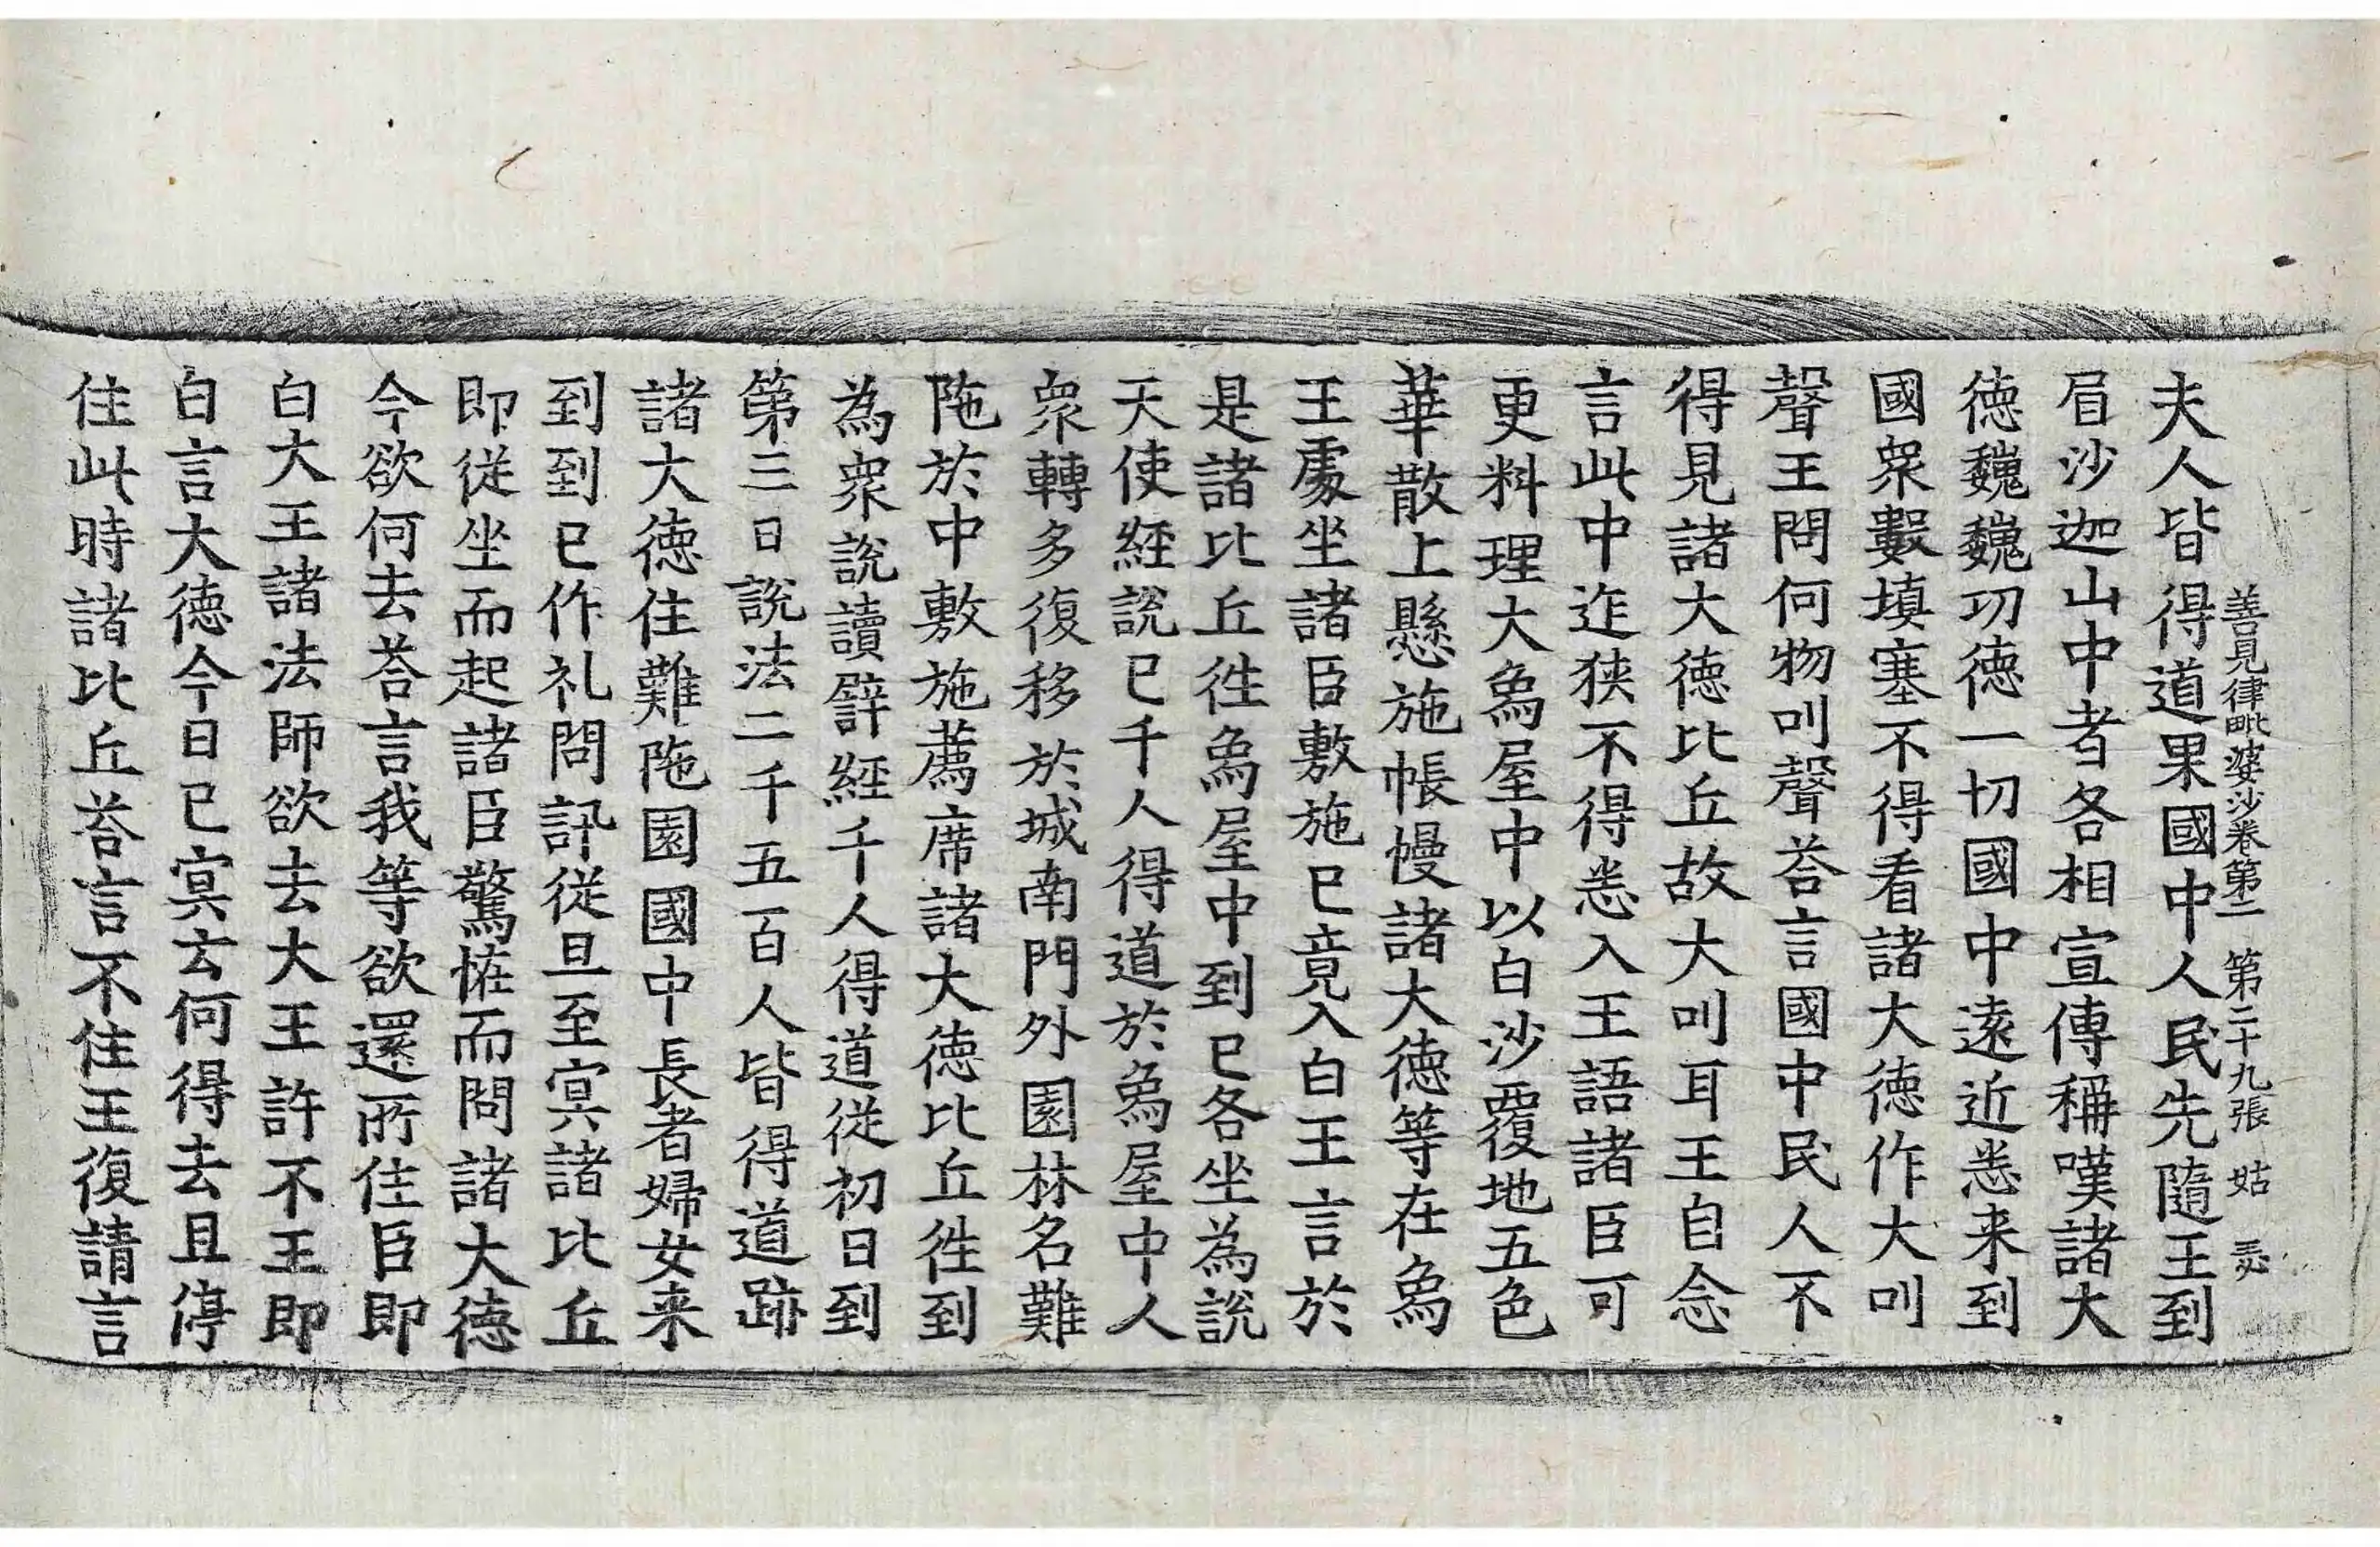 善見律毗婆沙卷第二 第二十九張 姑
夫人皆得道果國中人民先隨王到
眉沙迦山中者各相宣傳稱嘆諸大
德巍巍功德一切國中遠近悉来到
國衆數填塞不得看諸大德作大叫
聲王問何物叫聲荅言國中民人不
得見諸大德比丘故大叫耳王自念
言此中迮狹不得悉入王語諸臣可
更料理大爲屋中以白沙覆地五色
華散上懸施帳幔諸大德等在爲
王處坐諸臣敷施已竟入白王言於
是諸比丘徃爲屋中到已各坐為說
天使經說已千人得道於爲屋中人
衆轉多復移於城南門外園林名難
陁於中敷施薦席諸大德比丘徃到
為衆說讀譬經千人得道從初日到
第三日說法二千五百人皆得道跡
諸大德住難陁園國中長者婦女来
到到已作礼問訊從旦至冥諸比丘
即從坐而起諸臣驚恠而問諸大德
今欲何去荅言我等欲還所住臣即
白大王諸法師欲去大王許不王即
白言大德今日已冥云何得去且停
住此時諸比丘荅言不住王復請言